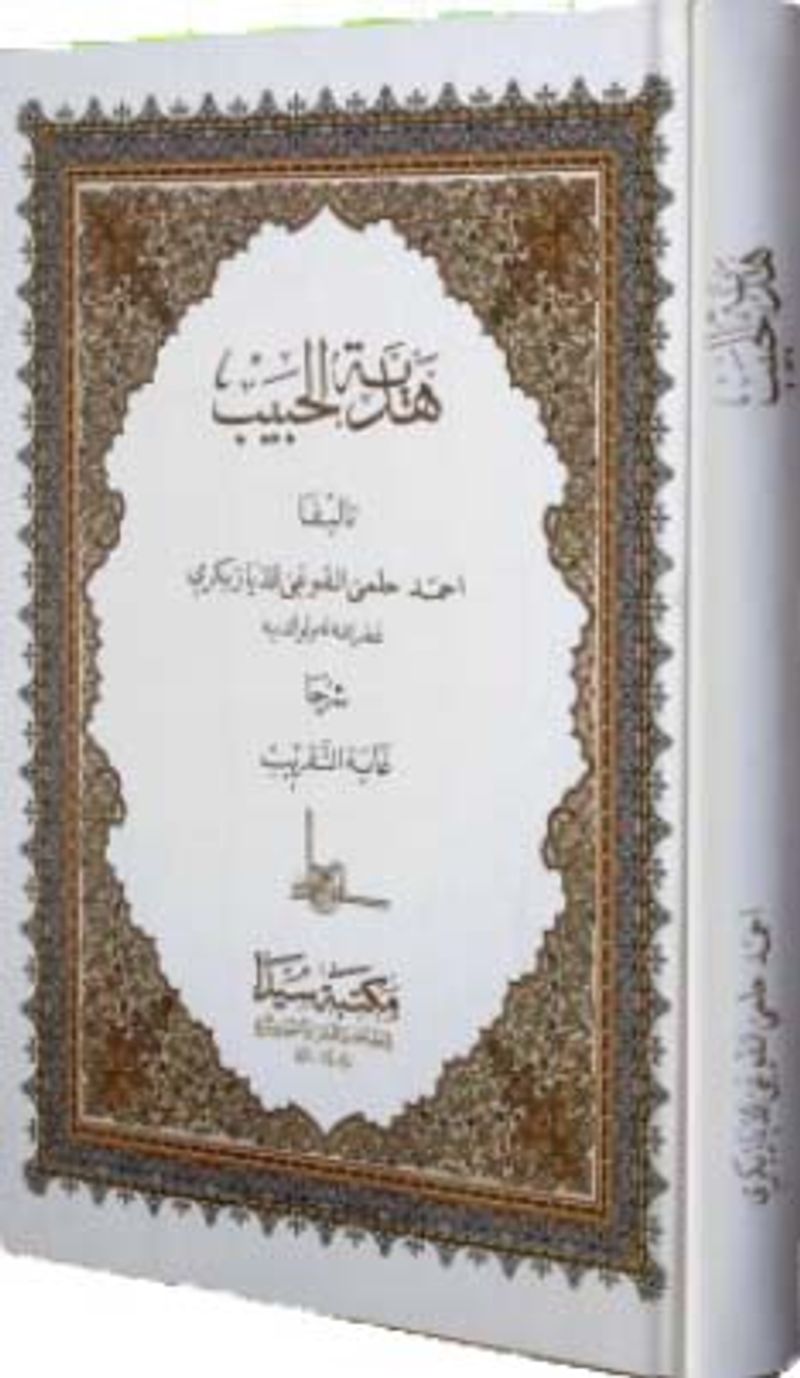 هَدِيَّةُ الحَبِيب
تاليفا
احمد حلمى القوغى الديار بكري
غفر الله له ولوالديه
شرحا
غاية التقريب
مكتبة سيدا
هدية الحبيب
احمد حلمى القوغى الديار بكري